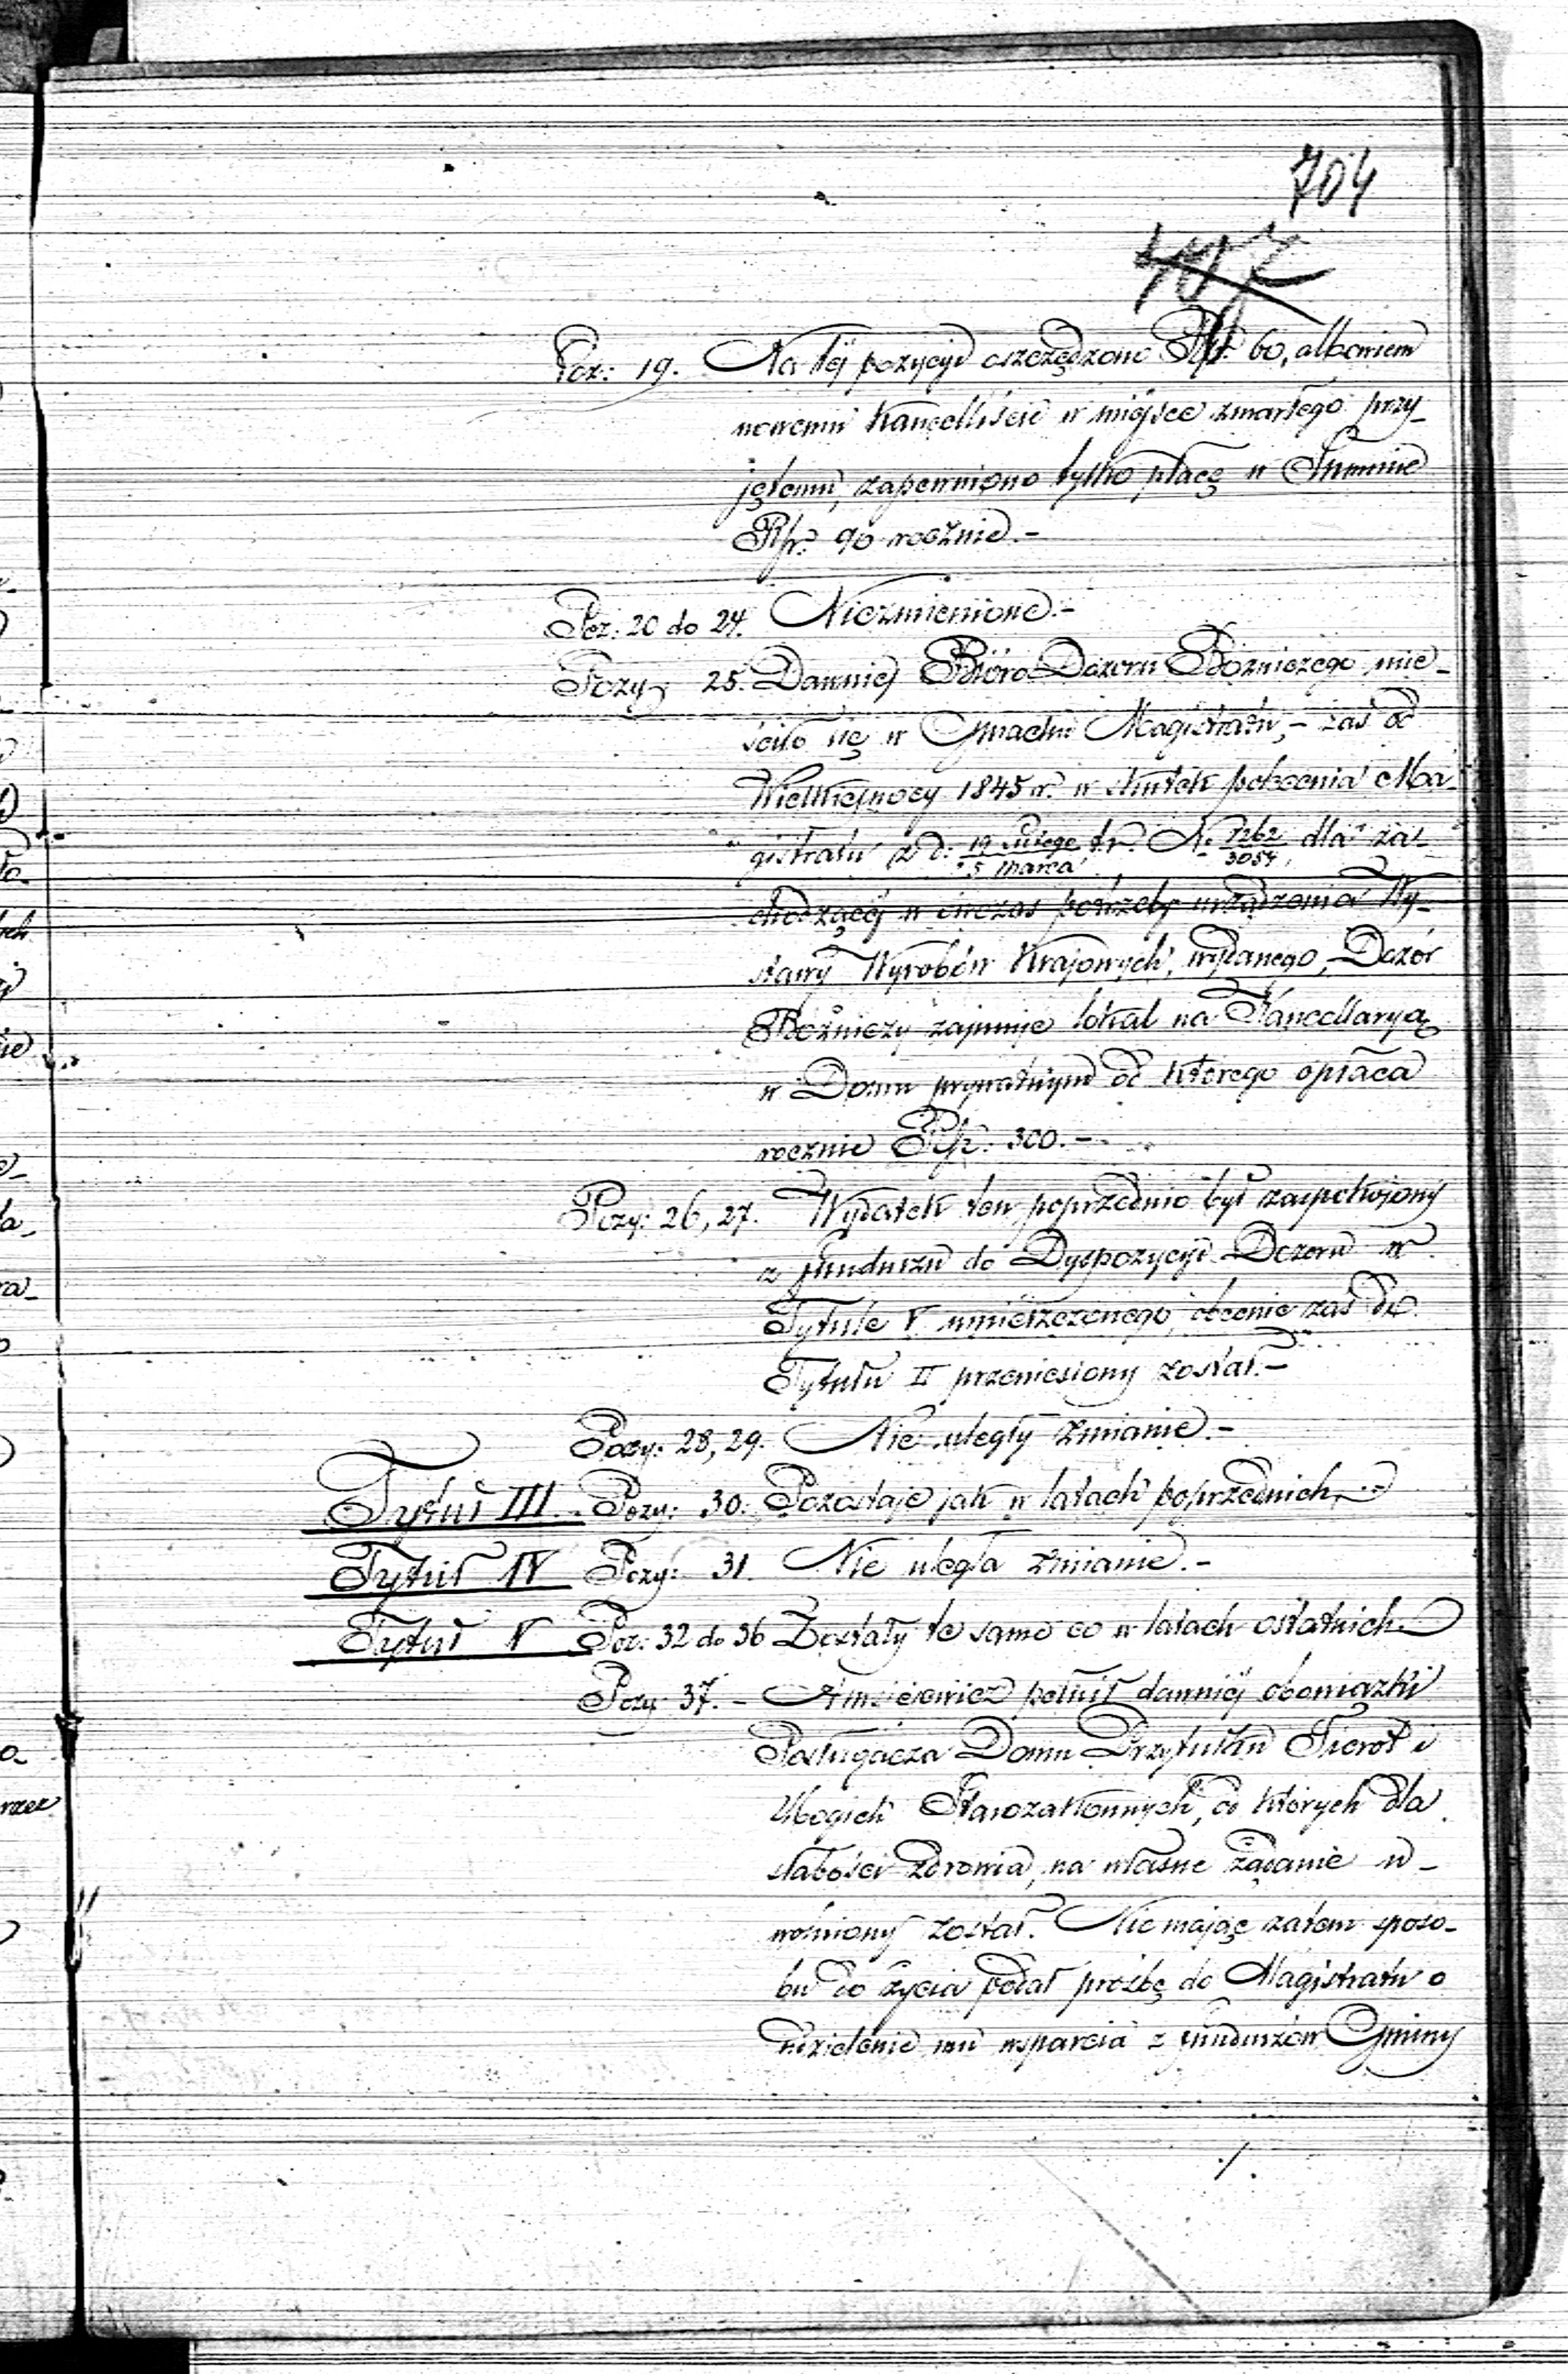 704
Poz: 19. Na téj pozycyi oszczędzono Rsr. 60, albowiem
nowemu Kancelliście w miéjsce zmarłego przy-
jętemu, zapewniono tylko płacę w Summie
Rsr. 90 rocznie.-
Poz: 20 do 24. Niezmienione.-
Pozy: 25. Dawniéj Bióro Dozoru Bóżniczego mie-
ściło się w Gmachu Magistratu,- zaś od
Wielkiejnocy 1845 r. w skutek polecenia Ma-
gistratu z d: 19 Lutego / 5 Marca t.r. No 7262 / 3054, dla za-
chodzącéj w ówczas potrzeby urządzenia Wy-
stawy Wyrobów Krajowych, wydanego, Dozór
Bóżniczy zajmuje lokal na Kancellaryą
w Domu prywatnym od którego opłaca
rocznie Rsr: 300.-
Pozy: 26, 27. Wydatek ten poprzednio był zaspokojony
z funduszu do Dyspozycyi Dozoru w
Tytule V umieszczonego, obecnie zaś do
Tytułu II przeniesiony został.-
Pozy: 28, 29. Nie uległy zmianie.-
Tytuł III. Pozy: 30. Pozostaje jak w latach poprzednich.-
Tytuł IV Pozy: 31. Nie uległa zmianie.-
Tytuł V Poz: 32 do 36 Zostały te same co w latach ostatnich.
Pozy: 37.- pełnił dawniéj obowiązki
Posługacza Domu Przytułku Sierot i
Ubogich Starozakonnych, od których dla
słabości zdrowia, na własne żądanie u-
wolniony został. Nie mając zatem sposo-
bu do życia podał prośbę do Magistratu o
udzielenie mu wsparcia z funduszów Gminy
./.